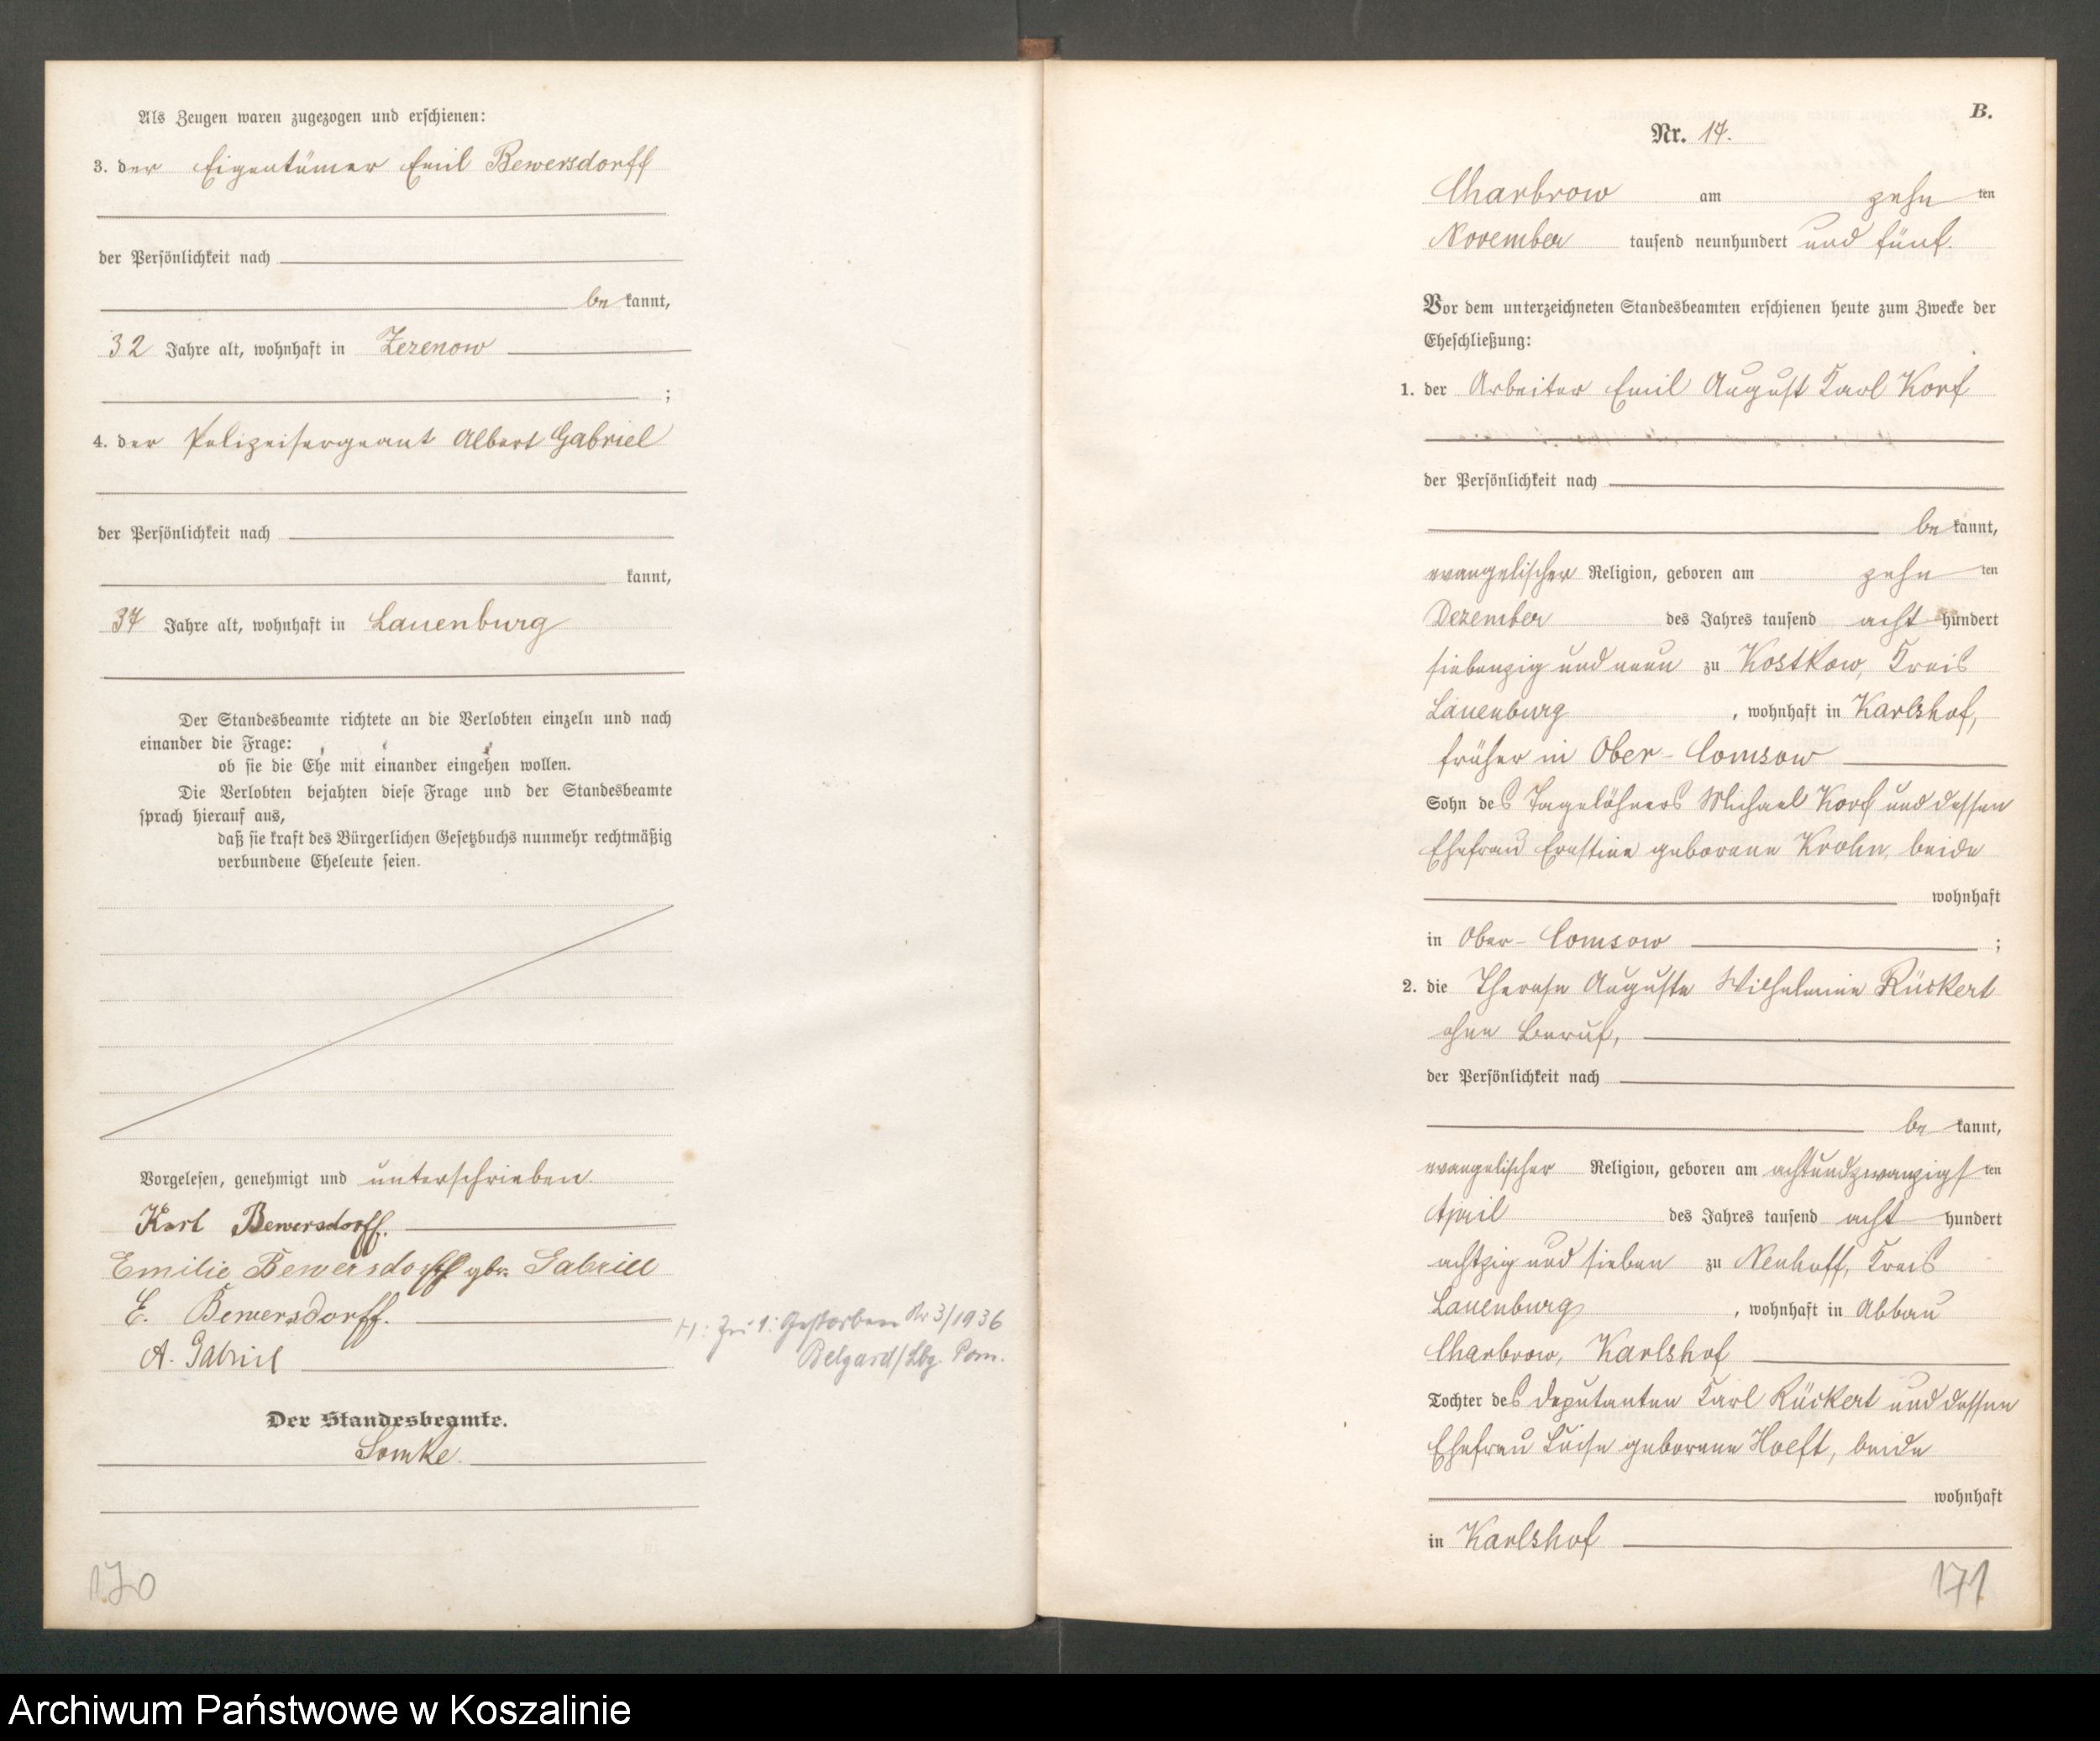 Als Zeugen waren zugezogen und erschienen:
3. der Eigentümer Emil Bewersdorff
der Persönlichkeit nach
be kannt,
32 Jahre alt, wohnhaft in Zezenow
;
4. der Polizeisergeant Albert Gabriel
der Persönlichkeit nach
kannt,
34 Jahre alt, wohnhaft in Lauenburg
Der Standesbeamte richtete an die Verlobten einzeln und nach
einander die Frage:
ob sie die Ehe mit einander eingehen wollen.
Die Verlobten bejahten diese Frage und der Standesbeamte
sprach hierauf aus,
daß sie kraft des Bürgerlichen Gesetzbuchs nunmehr rechtmäßig
verbundene Eheleute seien.
Vorgelesen, genehmigt und unterschrieben.
Karl Bewersdorff.
Emilie Bewersdorff gbr. Gabriel
E. Bewersdorff.
A. Gabriel
H: Zu 1: Gestorben Nr 3/1936
Belgard/Lbg. Pom.
Der Standesbeamte.
170
B.
Nr. 17.
Charbrow am zehn ten
November tausend neunhundert und fünf.
Vor dem unterzeichneten Standesbeamten erschienen heute zum Zwecke der
Eheschließung:
1. der Arbeiter Emil August Karl Korf
der Persönlichkeit nach
be kannt,
evangelischer Religion, geboren am zehn ten
Dezember des Jahres tausend acht hundert
siebenzig und neun zu Kostkow, Kreis
Lauenburg , wohnhaft in Karlshof,
früher in Ober-Comsow
Sohn des Tagelöhners Michael Korf und dessen
Ehefrau Ernstine geborene Krohn, beide
wohnhaft
in Ober-Comsow ;
2. die Therese Auguste Wilhelmine Rückert
ohne Beruf,
der Persönlichkeit nach
be kannt,
evangelischer Religion, geboren am achtundzwanzigs ten
April des Jahres tausend acht hundert
achtzig und sieben zu Neuhoff, Kreis
Lauenburg , wohnhaft in Abbau
Charbrow, Karlshof
Tochter des Deputanten Karl Rückert und dessen
Ehefrau Luise geborene Hoeft, beide
wohnhaft
in Karlshof
171
Archiwum Państwowe w Koszalinie